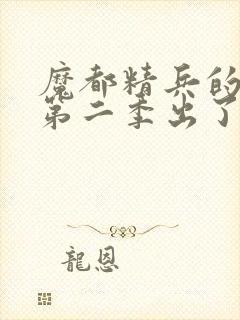 魔都精兵的
第二季出了
龍恩